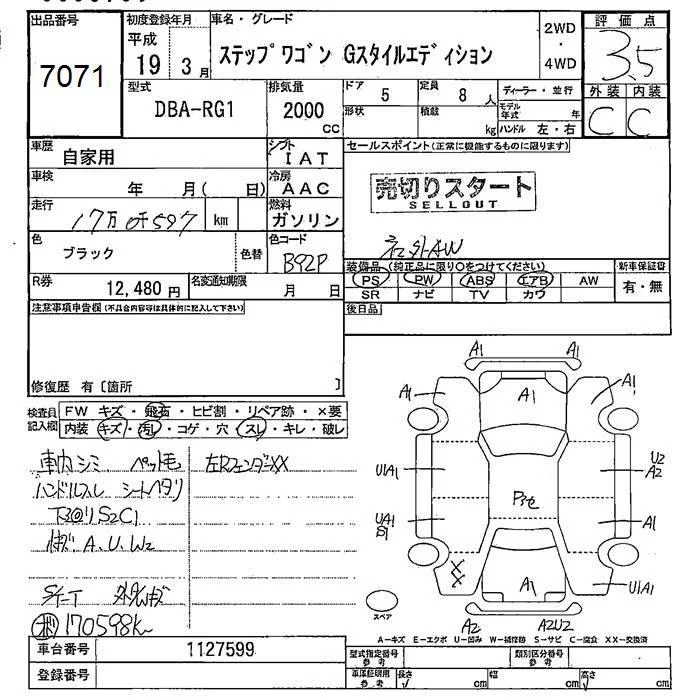 出品番号 初度登録年月 車名・グレード 2WD・4WD 評価点
7071 平成 19 3月 ステップワゴン Gスタイルエディション 3.5
型式 排気量 ドア 5 定員 8人 ディーラー・並行 外装 内装
DBA-RG1 2000cc 形状 積載 kg モデル年式 年 ハンドル 左・右 C C
車歴 自家用 シフト IAT セールスポイント(正常に機能するものに限ります)
車検 年 月( 日) 冷房 AAC 売切りスタート
SELLOUT
走行 17万0千597 km 燃料 ガソリン
色 ブラック 色替 色コード B92P 社外AW
装備品(純正品に限り○をつけてください) 新車保証書
R券 12,480円 名変通知期限 月 日 PS PW ABS エアB AW 有・無
SR ナビ TV カワ
注意事項申告欄(不具合内容等は具体的に記入して下さい) 後日品
修復歴 有〔箇所 〕
検査員記入欄 FW キズ・飛石・ヒビ割・リペア跡・×要
内装 キズ・汚レ・コゲ・穴・スレ・キレ・破レ
車内シミ ペット毛 左Rフェンダー××
ハンドルスレ シートヘタリ
下廻りS2C1
A.U.W2
170598K
A1 A1
A1 A1 A1
U1A1 U2 A2
Pキセ
UA1 S1 A1
XX A1 U1A1
スペア A2 A2U2
A-キズ E-エクボ U-凹み W-補修跡 S-サビ C-腐食 XX-交換済
車台番号 1127599 型式指定番号 参考 類別区分番号 参考
登録番号 車庫証明用 参考 長さ cm 幅 cm 高さ cm